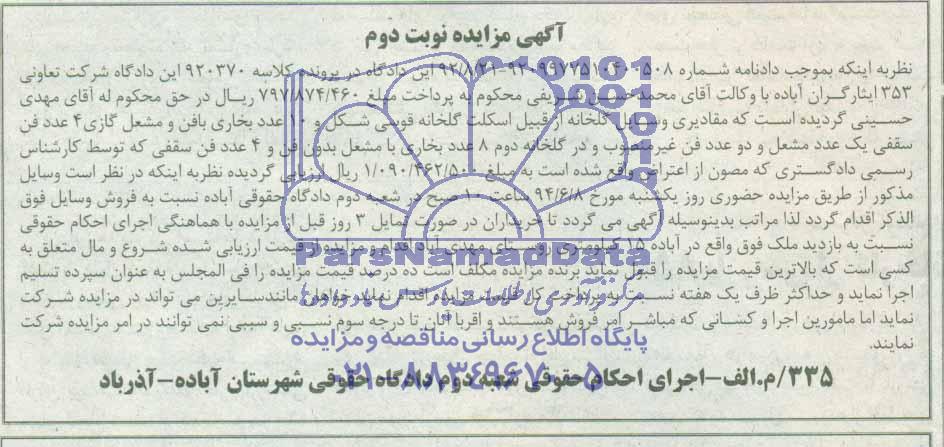 آگهی مزایده نوبت دوم
نظربه اینکه بموجب دادنامه شماره این دادگاه در پرونده کلاسه ۹۲۰۳۷۰ این دادگاه شرکت تعاونی
۳۵۳ ایثارگران آباده با وکالت آقای محمدحسین شریفی محکوم به پرداخت مبلغ ۷۹۷/۸۷۴/۴۶۰ ریال در حق محکوم له آقای مهدی
حسینی گردیده است که مقادیری وسایل گلخانه ازقبیل اسکلت گلخانه قوسی شکل و ۱۰ عدد بخاری بافن و مشعل گازی۴ عدد فن
سقفی یک عدد مشعل و دو عدد فن غیرمنصوب و در گلخانه دوم ۸ عدد بخاری با مشعل بدون فن و ۴ عدد فن سقفی که توسط کارشناس
رسمی دادگستری که مصون از اعتراض واقع شده است به مبلغ ۱/۰۹۰/۴۶۲/۵۰۰ ریال ارزیابی گردیده نظربه اینکه در نظر است وسایل
مذکور از طریق مزایده حضوری روز یکشنبه مورخ ۹۴/۶/۸ ساعت ۱۰ صبح در شعبه دوم دادگاه حقوقی آباده نسبت به فروش وسایل فوق
الذکر اقدام گردد لذا مراتب بدینوسیله آگهی می گردد تا خریداران در صورت تمایل ۳ روز قبل از مزایده با هماهنگی اجرای احکام حقوقی
نسبت به بازدید ملک فوق واقع در آباده ۱۵ کیلومتری روستای مهدی آباد اقدام و مزایده از قیمت ارزیابی شده شروع و مال متعلق به
کسی است که بالاترین قیمت مزایده را قبول نماید برنده مزایده مکلف است ده درصد قیمت مزایده را فی المجلس به عنوان سپرده تسلیم
اجرا نماید و حداکثر ظرف یک هفته نسبت به پرداخت کل قیمت مزایده اقدام نماید خواهان مانندسایرین می تواند در مزایده شرکت
نماید اما مامورین اجرا و کسانی که مباشر امر فروش هستند و اقربا آنان تا درجه سوم نسبی و سببی نمی توانند در امر مزایده شرکت
نمایند.
۳۳۵/م.الف-اجرای احکام حقوقی شعبه دوم دادگاه حقوقی شهرستان آباده-آذرباد
ParsNamadData
پایگاه اطلاع رسانی مناقصه و مزایده